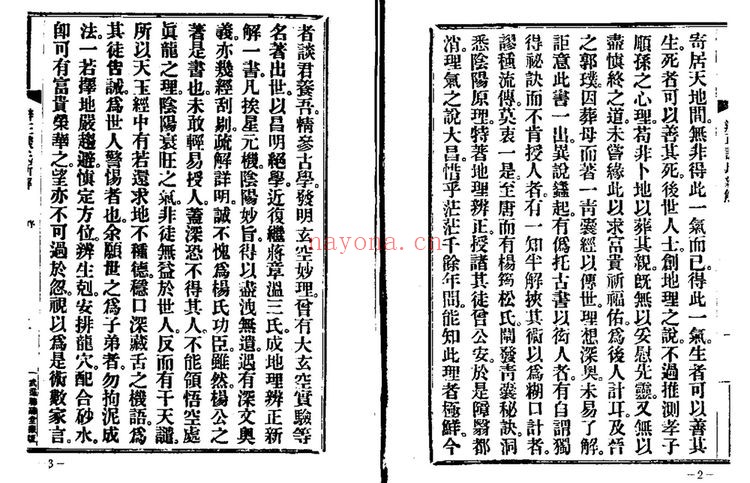 寄居天地間。無非得此一氣而已得此一氣。生者可以善其
生。死者可以善其死。後世人士創地理之說。不過推測孝子
順孫之心理。苟非卜地以葬其親。旣無以安慰先靈。又無以
盡愼終之道。未嘗緣此以求富貴。祈福佑。爲後人計耳。及晉
之郭璞。因葬母而著一靑囊經以傳世。理想深奧。未易了解。
詎意此書一出。異說蠭起。有僞托古書以衒人者。有自謂獨
得祕訣而不肯授人者。有一知半解。挾其術以爲糊口計者。
謬種流傳。莫衷一是。至唐而有楊筠松氏。闡發靑囊秘訣。洞
悉陰陽原理。特著地理辨正。授諸其徒曾公安。於是障翳都
消。理氣之說大昌。惜乎茫茫千餘年間。能知此理者極鮮。今
—2—
者談君養吾。精參古學。發明玄空妙理。曾有大玄空實驗等
名著出世。以昌明絕學。近復繼蔣章溫三氏成地理辨正新
解一書。凡挨星元機。陰陽妙旨。得以盡洩無遺。遇有深文奧
義。亦幾經刮剔。疏解詳明。誠不愧爲楊氏功臣。雖然。楊公之
著是書也。未敢輕易授人。蓋深恐不得其人。不能領悟空處
眞龍之理。陰陽衰旺之氣。非徒無益於世人。反而有干天譴
所以天玉經中有若還求地不種德。穩口深藏舌之機語。爲
其徒吿誡。爲世人警惕者也。余願世之爲子弟者。勿拘泥成
法。一若擇地嚴趨避。愼定方位。辨生剋。安排龍穴。配合砂水。
卽可有富貴榮華之望。亦不可過於忽視。以爲是術數家言
序
3—
nayona.cn